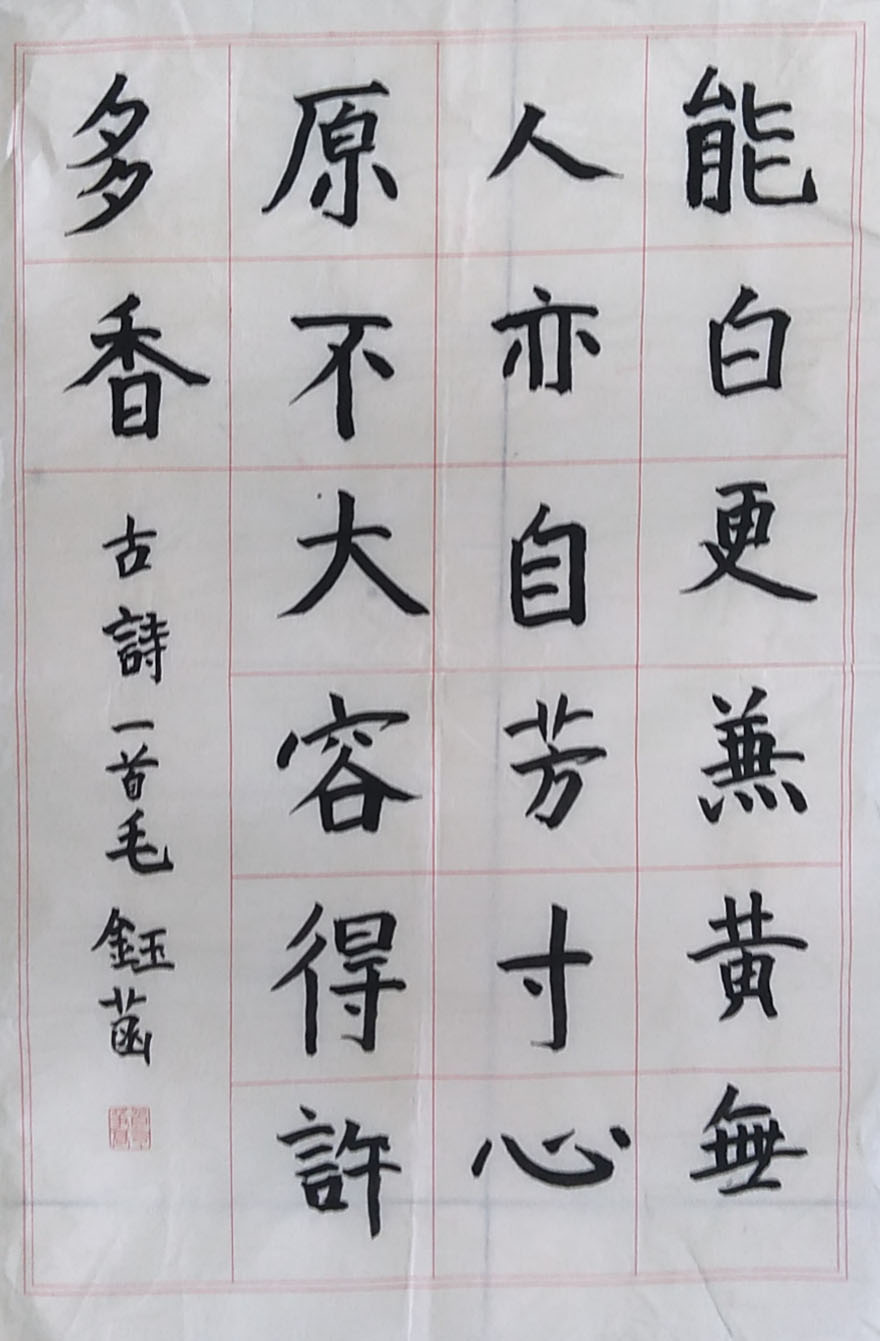 能白更兼黄無
人亦自芳寸心
原不大容得許
多香
古詩一首毛鈺菡